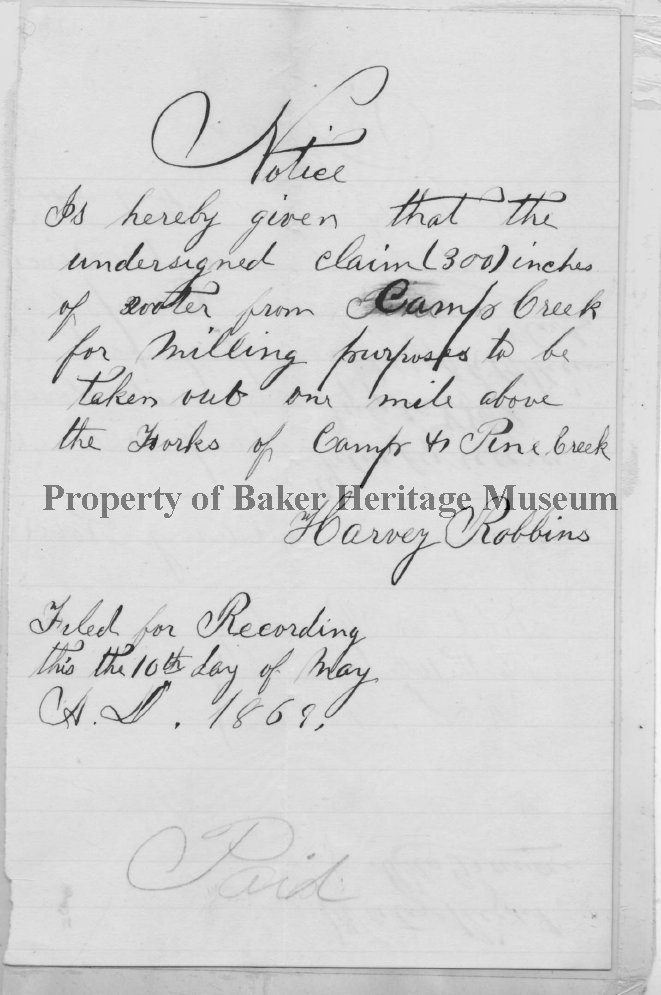 Notice
Is hereby given that the
undersigned claim (300) inches
of water from Camp Creek
for Milling purposes to be
taken out one mile above
the Forks of Camp & Pine Creek
Property of Baker Heritage Museum
Harvey Robbins
Filed for Recording
this the 10th day of May
A.D. 1869.
Paid